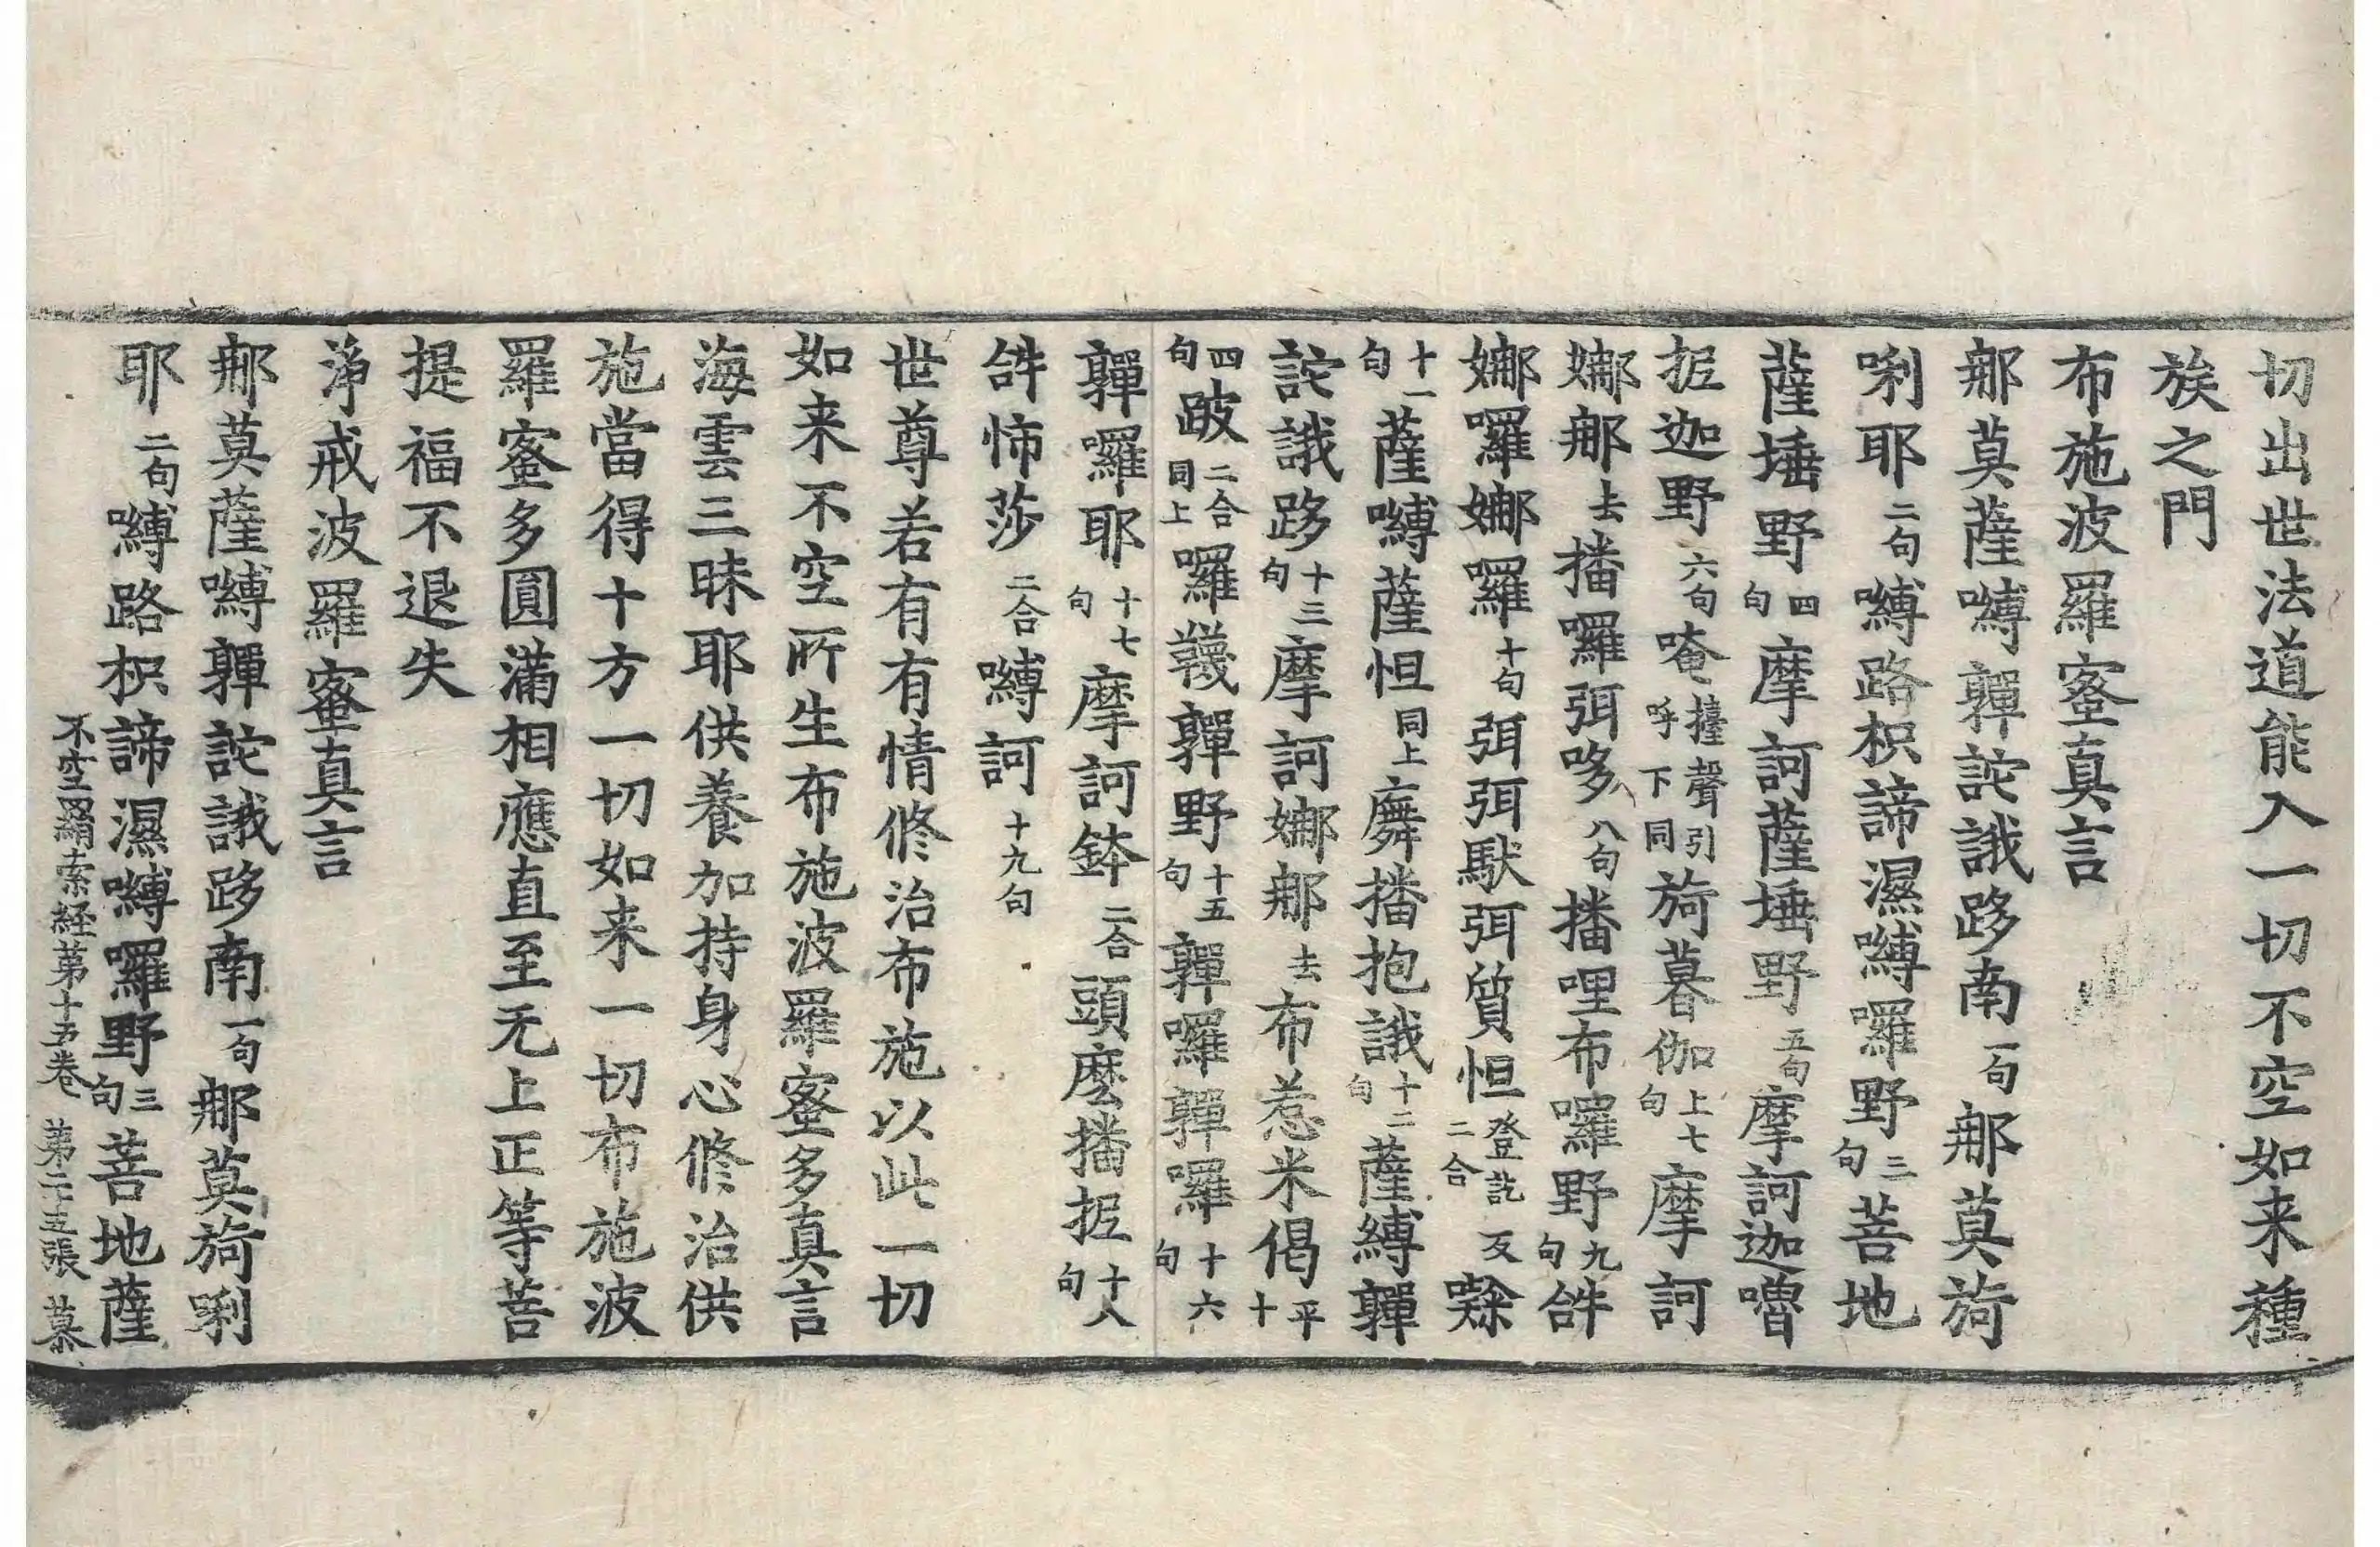 切出世法道能入一切不空如来種
族之門
布施波羅蜜真言
那莫薩嚩軃詑誐跢南一句那莫旖
唎耶二句嚩路枳諦濕嚩囉野三句菩地
薩埵野四句摩訶薩埵野五句摩訶迦嚕
抳迦野六句唵擡聲引呼下同旖暮伽上七句摩訶
娜那去播囉弭哆八句播哩布囉野九句𤙖
娜囉娜囉十句弭弭馱弭質怛登訖反二合
十一句薩嚩薩怛同上䑛播抱誐十二句薩縛軃
詑誐跢十三句摩訶娜那去布惹米偈平十
四句跛二合同上囉韈軃野十五句軃囉軃囉十六句
軃囉耶十七句摩訶鉢二合頭麼播抳十八句
𤙖怖莎二合嚩訶十九句
世尊若有有情修治布施以此一切
如来不空所生布施波羅蜜多真言
海雲三昧耶供養加持身心修治供
施當得十方一切如来一切布施波
羅蜜多圓滿相應直至无上正等菩
提福不退失
淨戒波羅蜜真言
那莫薩嚩軃詑誐跢南一句那莫旖唎
耶二句嚩路枳諦濕嚩囉野三句菩地薩
不空羂索経苐十五卷 第二十五張 慕